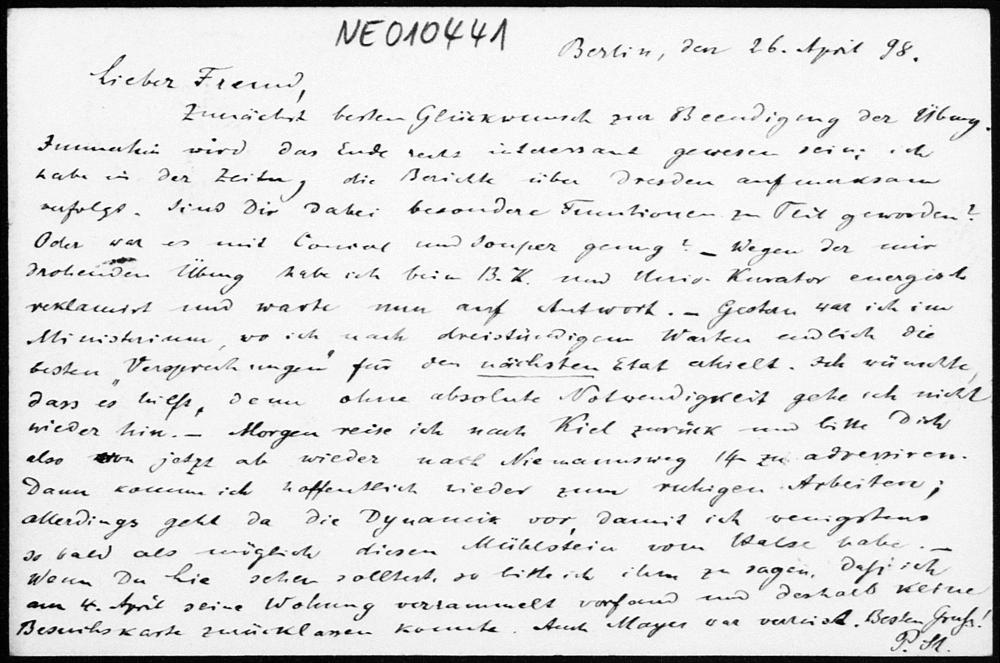 NE010441
Berlin, den 26. April 98.
Lieber Freund,
Zunächst besten Glückwunsch zur Beendigung der Übung.
Immerhin wird das Ende recht interessant gewesen sein; ich
habe in der Zeitung die Berichte über Dresden aufmerksam
verfolgt. Sind Dir dabei besondere Funktionen zu Teil geworden?
Oder war es mit und Souper genug? – Wegen der mir
drohenden Übung habe ich beim B.K. und Univ. Kurator energisch
reklamirt und warte nun auf Antwort. – Gestern war ich im
Ministerium, wo ich nach dreistündigem Warten endlich die
besten „Versprechungen" für den nächsten Etat erhielt. Ich wünschte,
dass es hilft, denn ohne absolute Notwendigkeit gehe ich nicht
wieder hin. – Morgen reise ich nach Kiel zurück und bitte Dich
also von jetzt ab wieder nach Niemannsweg 14 zu adressiren.
Dann komme ich hoffentlich wieder zum ruhigen Arbeiten;
allerdings geht da die Dynamik vor, damit ich wenigstens
so bald als möglich diesen Mühlstein vom Halse habe. –
Wenn Du Lie sehen solltest, so bitte ich ihm zu sagen, daß ich
am 4. April seine Wohnung verrammelt vorfand und deshalb keine
Besuchskarte zurücklassen konnte. Auch Mayer war verreist. Besten Gruß!
P. St.